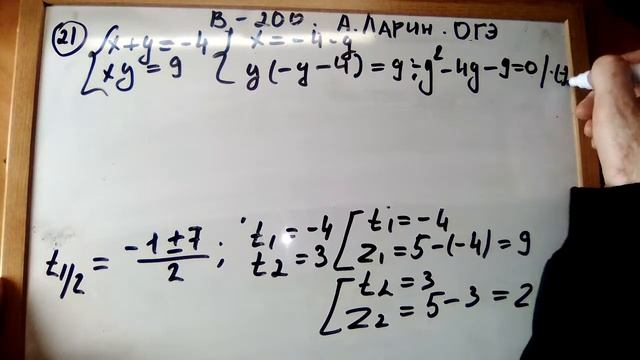 В-200. А. ЛАРИН. ОГЭ
21 x+y=-4 x=-4-y
xy=9 y(-y-4)=9; -y²-4y-9=0 |·(-1)
t₁/₂ = (-1±7)/2 ; t₁=-4 t₁=-4
t₂=3 z₁=5-(-4)=9
t₂=3
z₂=5-3=2